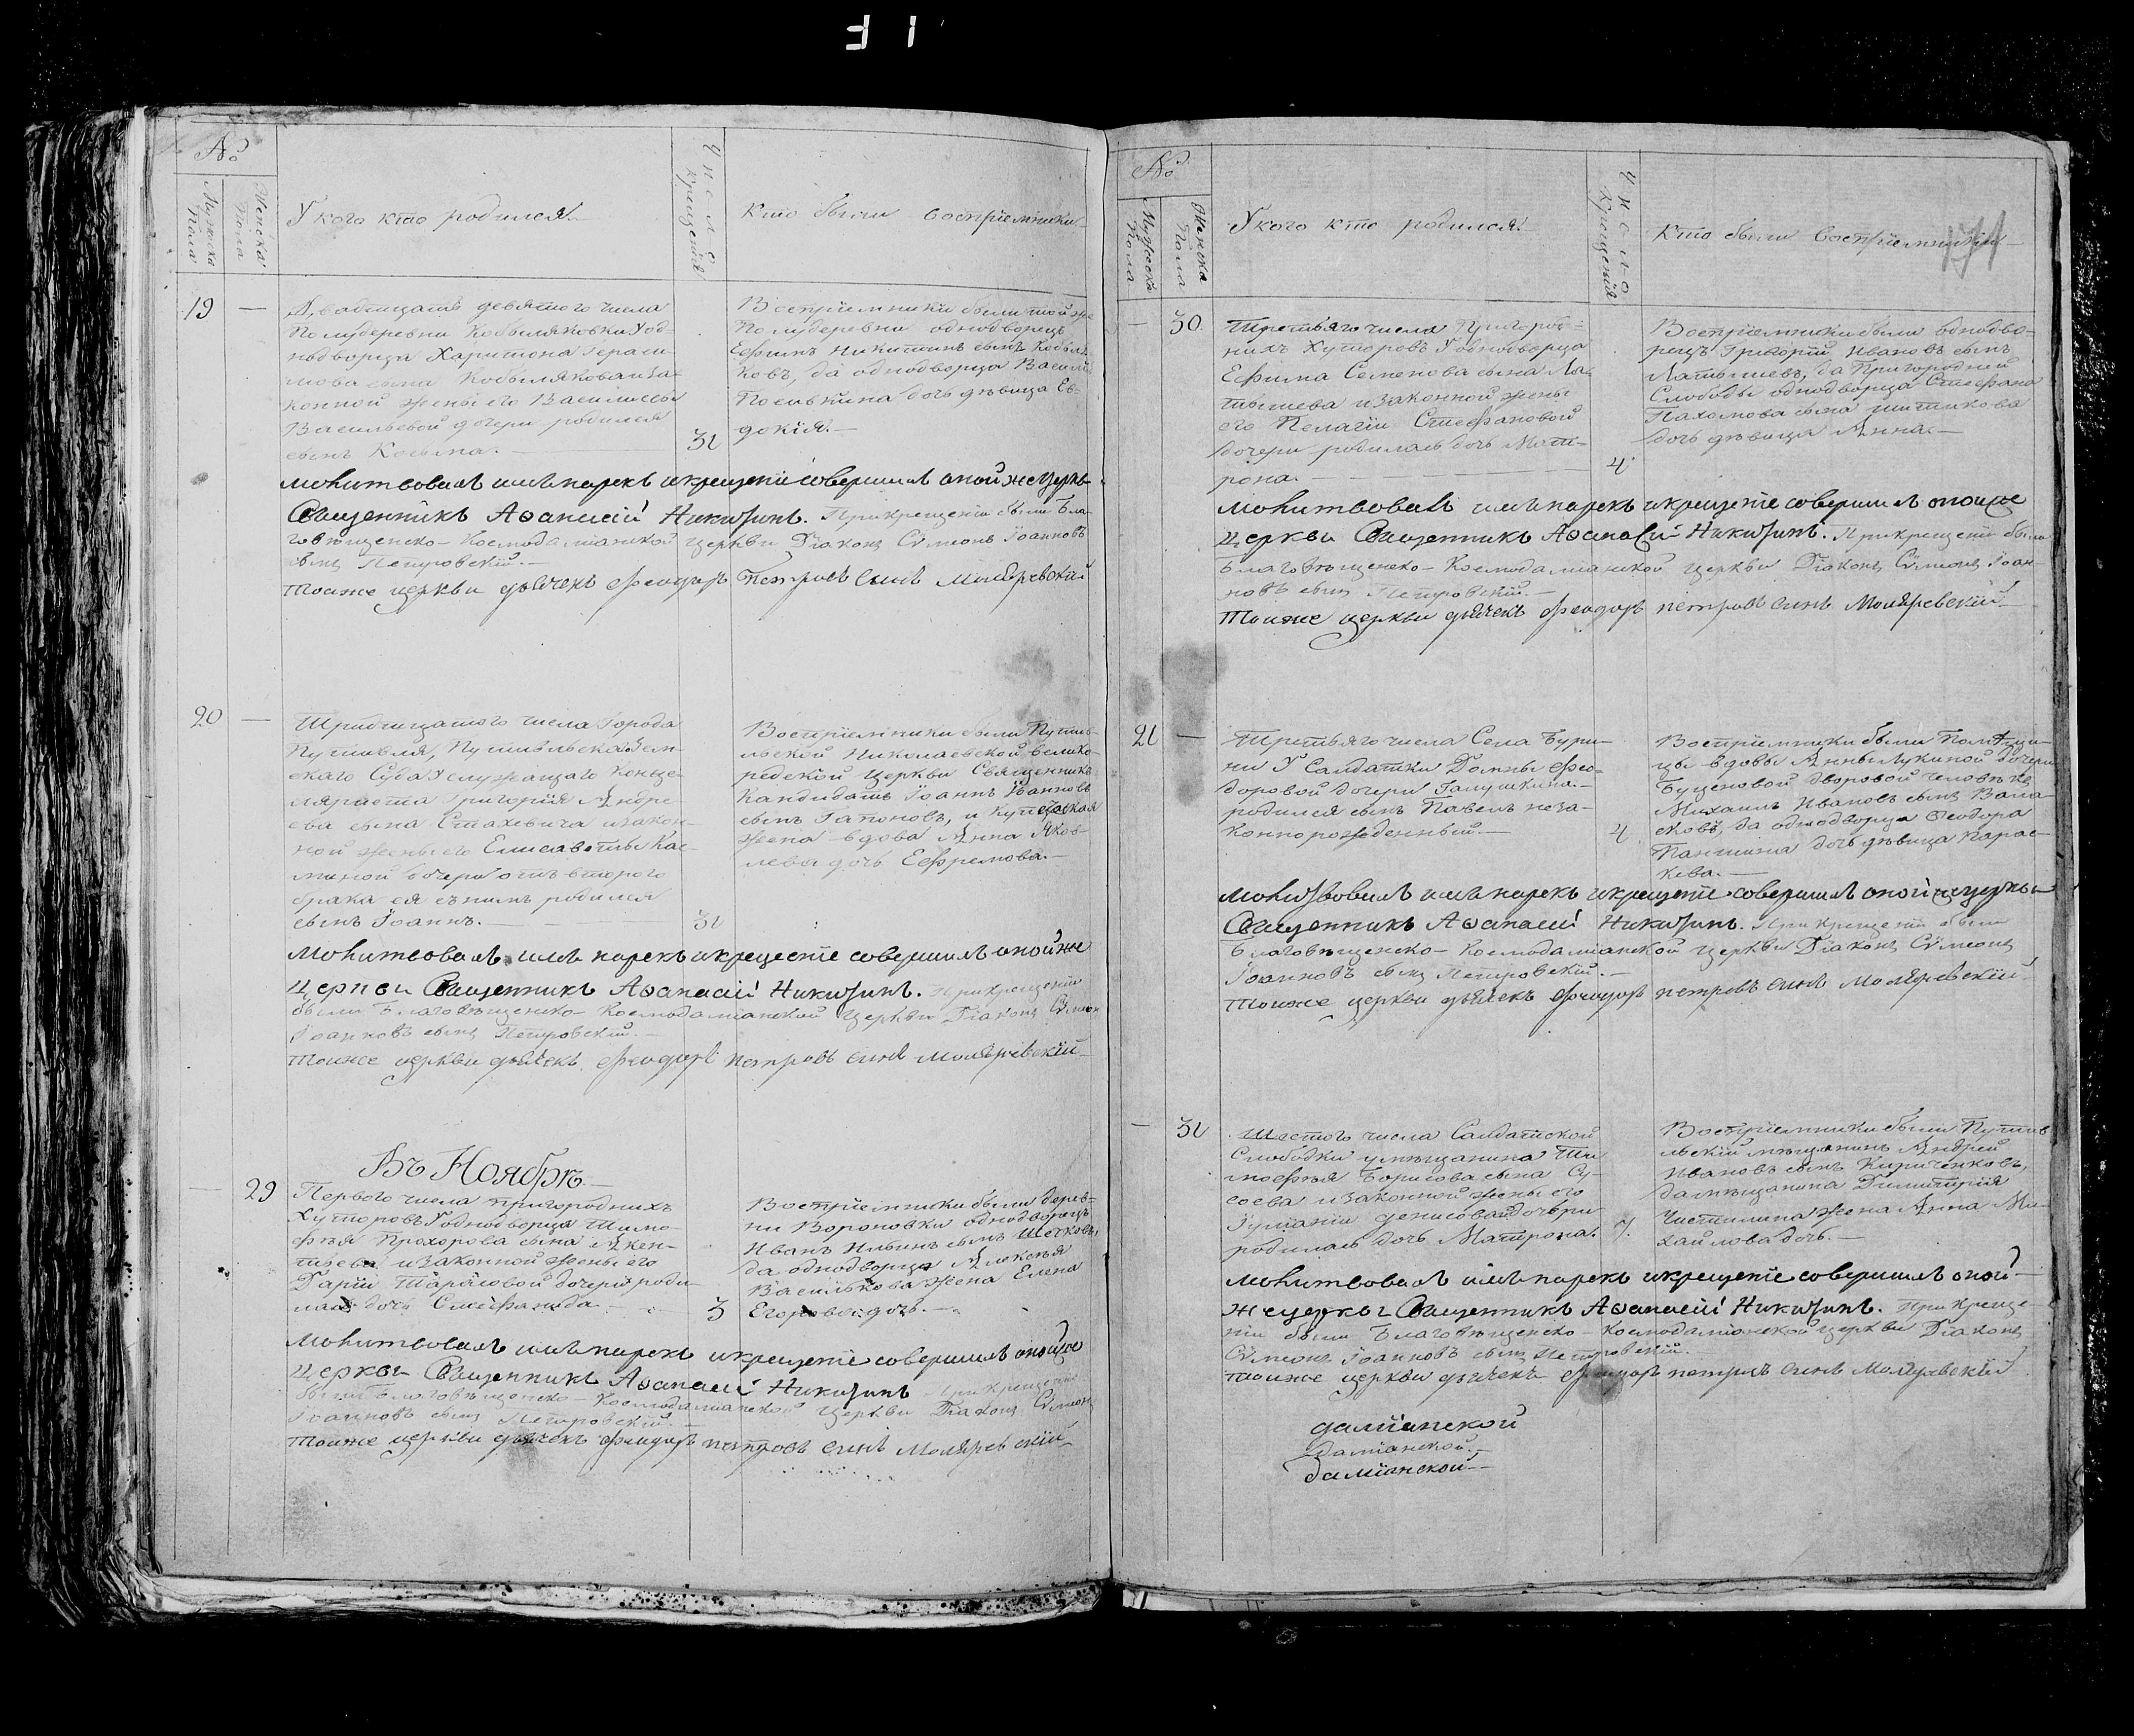 №
Мужеска Пола
Женска Пола
У кого кто родился.
Число Крещенія
Кто были восприемники
19 —
Двадцать девятого числа
Полудеревни Кобыляковки У од-
нодворца Харитона Гераси-
мова сына Кобылякова и за-
конной жены его Василисы
Васильевой дочери родился
сынъ Косьма. —
31
Восприемники были той же
Полудеревни однодворецъ
Ефимъ Никитинъ сынъ Кобыля-
ковъ, да однодворца
дочь дѣвица Ев-
докія. —
молитвовалъ имя нарекъ и крещеніе совершилъ оной же церкви
Священникъ Аѳанасій Никитинъ. При крещеніи были Бла-
говѣщенско-Космодаміанской церкви Діаконъ Сѵмеонъ Іоанновъ
сынъ Петровскій. —
тоиже церкви дьячекъ Феодоръ Петровъ синъ Моляревскій
20 —
Тридцатого числа Города
Путивля, Путивльска Зем-
скаго Суда У служащаго Канце-
ляриста Григорія Андре-
ева сына Стахевича и закон-
ной жены его Елисаветы Кос-
миной дочери отъ второго
брака ея съ нимъ родился
сынъ Іоаннъ. —
31
Восприемники были Путив-
льской Николаевской велико-
рецкой Церкви Священникъ
Кандидатъ Іоаннъ Іоанновъ
сынъ Гапоновъ, и Купецкая
жена вдова Анна Яков-
лева дочь Ефремова. —
молитвовалъ имя нарекъ и крещеніе совершилъ оной же
церкви Священникъ Аѳанасій Никитинъ. При крещеніи
были Благовѣщенско-Космодаміанской Церкви Діаконъ Сѵмеонъ
Іоанновъ сынъ Петровскій. —
тоиже церкви дьячекъ Феодоръ петровъ синъ Моляревскій
Въ Ноябрѣ. —
— 29
Перваго числа пригородныхъ
Хуторовъ У однодворца Тимо-
фѣя Прохорова сына Акен-
тьева и законной жены его
Даріи Тарасовой дочери роди-
лась дочь Стефанида —
3
Восприемники были дерев-
ни Вороновки однодворецъ
Иванъ Ильинъ сынъ
да однодворца Алексѣя
Василькова жена Елена
Егорова дочь. —
молитвовалъ имя нарекъ и крещеніе совершилъ оной же
Церкви Священникъ Аѳанасій Никитинъ При крещеніи
были Благовѣщенско-Космодаміанской Церкви Діаконъ Сѵмеонъ
Іоанновъ сынъ Петровскій. —
тоиже церкви дьячекъ Феодоръ петровъ синъ Моляревскій
№
Мужеска Пола
Женска Пола
У кого кто родился.
Число Крещенія
Кто были Восприемники
— 30
Третьяго числа Пригород-
нихъ Хуторовъ У однодворца
Ефима Семенова сына Ла-
тышева и законной жены
его Пелагіи Стефановой
дочери родилась дочь Мат-
рона. —
4
Восприемники были однодво-
рецъ Григорій Ивановъ сынъ
Латышевъ, да Пригородней
Слободы однодворца Стефана
Пахомова сына
дочь дѣвица Анна. —
молитвовалъ имя нарекъ и крещеніе совершилъ оной же
церкви Священникъ Аѳанасій Никитинъ. При крещеніи были
Благовѣщенско-Космодаміанской Церкви Діаконъ Сѵмеонъ Іоан-
новъ сынъ Петровскій. —
тоиже церкви дьячекъ Феодоръ петровъ синъ Моляревскій
21 —
Третьяго числа Села Буры-
ни У Салдатки Домны Фео-
доровой дочери Галушкина. —
родился сынъ Павелъ неза-
коннорожденный. —
4
Восприемники были Помѣщи-
цы вдовы Анны Лукиной дочери
Дворовой человѣкъ
Михаилъ Ивановъ сынъ
да однодворца Ѳеодора
дочь дѣвица Парас-
кева. —
молитвовалъ имя нарекъ и крещеніе совершилъ оной же церкви
Священникъ Аѳанасій Никитинъ. При крещеніи были
Благовѣщенско-Космодаміанской Церкви Діаконъ Сѵмеонъ
Іоанновъ сынъ Петровскій. —
тоиже церкви дьячекъ Феодоръ петровъ синъ Моляревскій
— 31
Шестого числа Салдатской
Слободки у мѣщанина Ти-
мофѣя Борисова сына Су-
соева и законной жены его
Іуліаніи Денисова дочери
родилась дочь Матрона.
7.
Восприемники были Путив-
льскій мѣщанинъ Андрей
Ивановъ сынъ Кириченковъ,
да мѣщанина Димитрія
Чистилина жена Анна Ми-
хайлова дочь. —
молитвовалъ имя нарекъ и крещеніе совершилъ оной
же церкви Священникъ Аѳанасій Никитинъ. При креще-
ніи были Благовѣщенско-Космодаміанской церкви Діаконъ
Сѵмеонъ Іоанновъ сынъ Петровскій.
тоиже церкви дьячекъ Феодоръ петровъ синъ Моляревскій
даміанской
даміанской. —
даміанской —